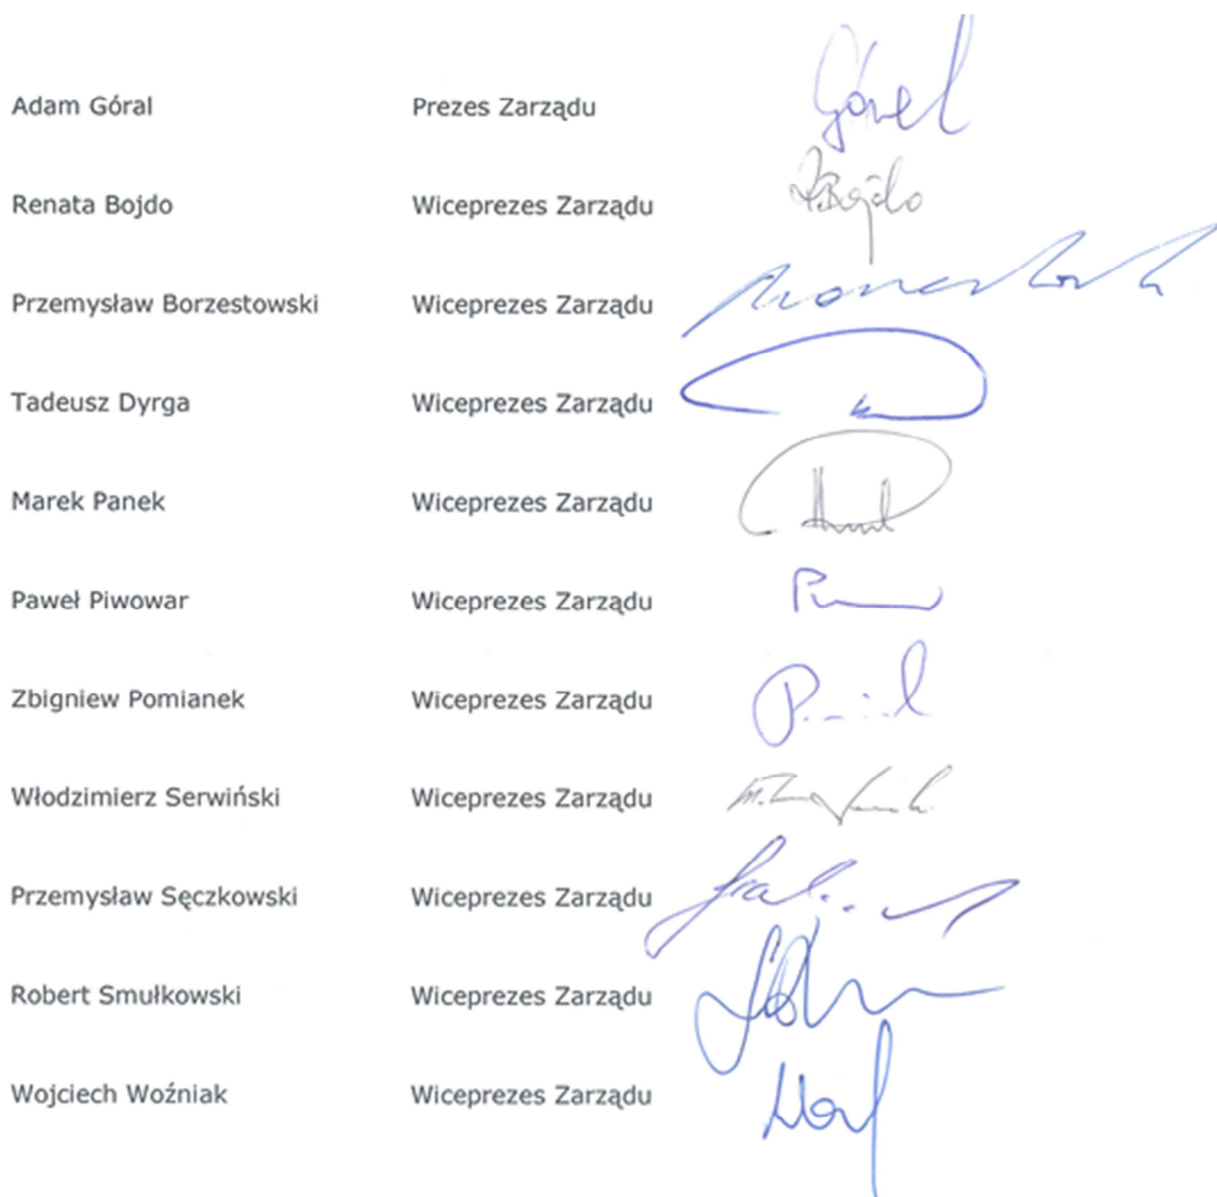 Adam Góral Prezes Zarządu Góral
Renata Bojdo Wiceprezes Zarządu RBojdo
Przemysław Borzestowski Wiceprezes Zarządu
Tadeusz Dyrga Wiceprezes Zarządu
Marek Panek Wiceprezes Zarządu
Paweł Piwowar Wiceprezes Zarządu
Zbigniew Pomianek Wiceprezes Zarządu
Włodzimierz Serwiński Wiceprezes Zarządu
Przemysław Sęczkowski Wiceprezes Zarządu
Robert Smułkowski Wiceprezes Zarządu
Wojciech Woźniak Wiceprezes Zarządu